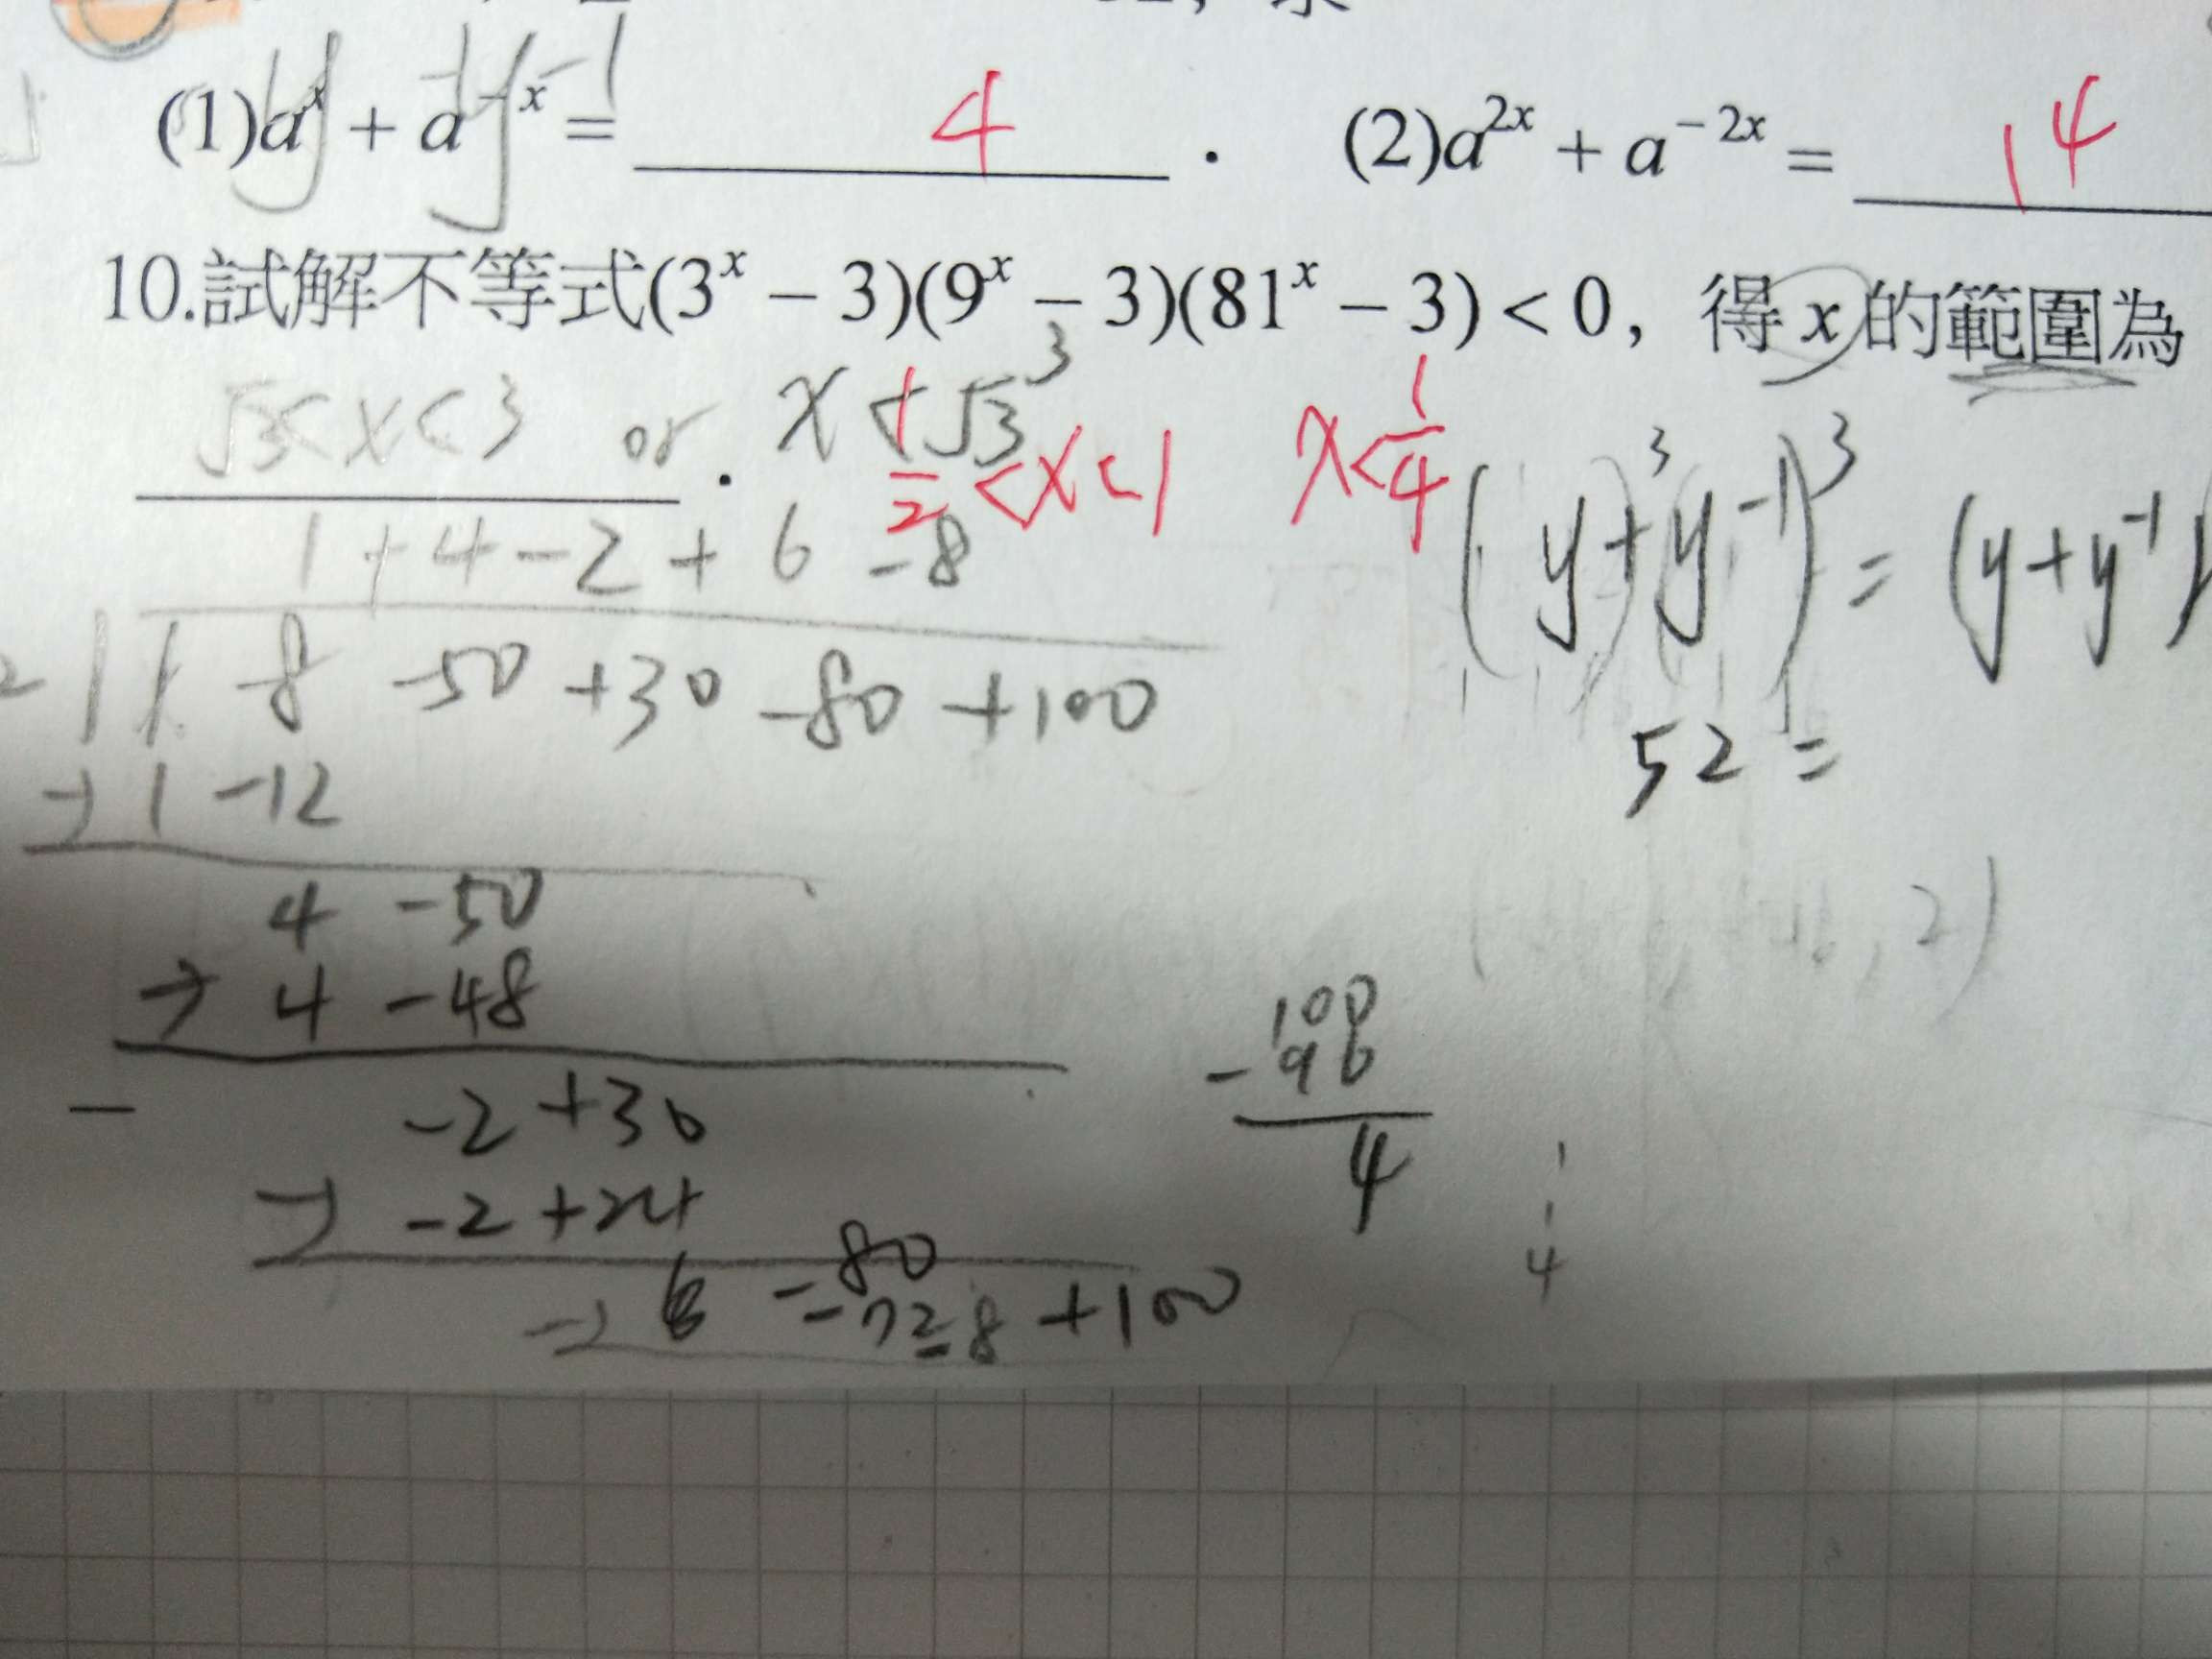 (1)aˣ + a⁻ˣ = 4 . (2)a²ˣ + a⁻²ˣ = 14
10.試解不等式(3ˣ − 3)(9ˣ − 3)(81ˣ − 3) < 0，得 x 的範圍為
√3 < x < 3 or . x < √3
1/2 < x < 1 x < 1/4
1 + 4 − 2 + 6 − 8
(y + y⁻¹)³ = (y + y⁻¹)
-8 -50 +30 -80 +100
52 =
→ 1 -12
4 -50
→ 4 -48
-2 +30
→ -2 +24
6 -80
-72
-8 +100
100
- 96
4